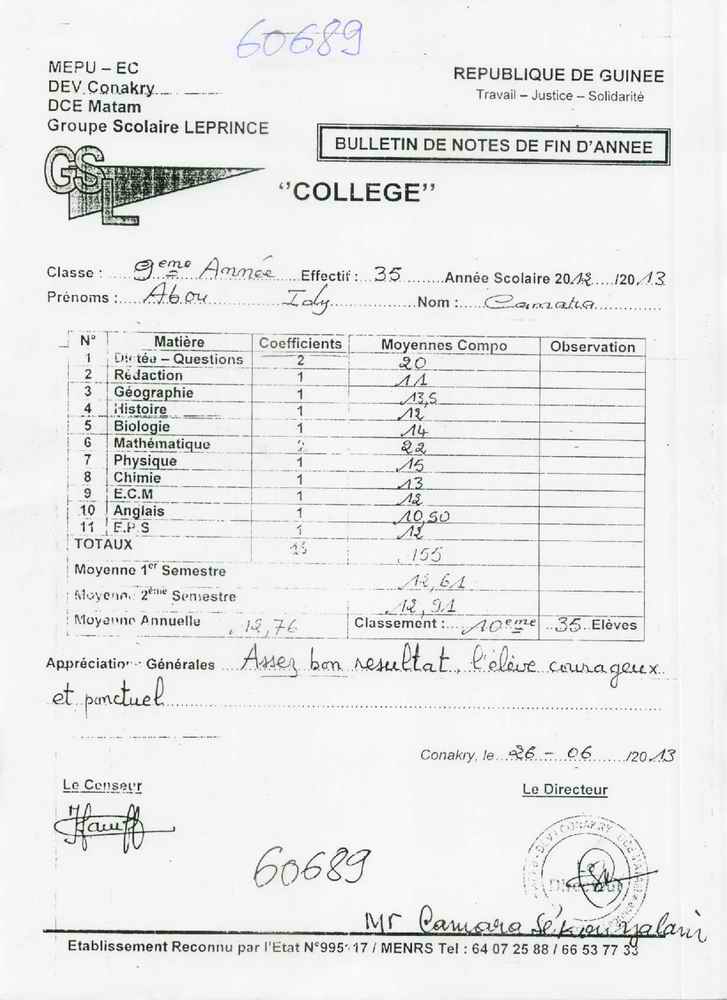 60689
MEPU – EC
DEV.Conakry
DCE Matam
Groupe Scolaire LEPRINCE
REPUBLIQUE DE GUINEE
Travail – Justice – Solidarité
BULLETIN DE NOTES DE FIN D'ANNEE
GSL
"COLLEGE"
Classe : 9eme Année Effectif : 35 Année Scolaire 2012 /2013
Prénoms : Abou Idy Nom : Camara
N° Matière Coefficients Moyennes Compo Observation
1 Dictée – Questions 2 20
2 Rédaction 1 11
3 Géographie 1 13,5
4 Histoire 1 12
5 Biologie 1 14
6 Mathématique 2 22
7 Physique 1 15
8 Chimie 1 13
9 E.C.M 1 12
10 Anglais 1 10,50
11 E.P.S 1 12
TOTAUX 13 155
Moyenne 1er Semestre 12,61
Moyenne 2ème Semestre 12,91
Moyenne Annuelle 12,76 Classement : 10eme 35 Elèves
Appréciation Générales Assez bon resultat, l'élève courageux
et ponctuel
Conakry, le 26 – 06 /2013
Le Censeur
Le Directeur
60689
Le
Directeur
Mr Camara Sékou
Etablissement Reconnu par l'Etat N°995 17 / MENRS Tel : 64 07 25 88 / 66 53 77 33